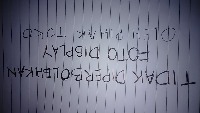 TIDAK DIPERBOLEHKAN
FOTO DISPLAY
OLEH PIHAK TOKO